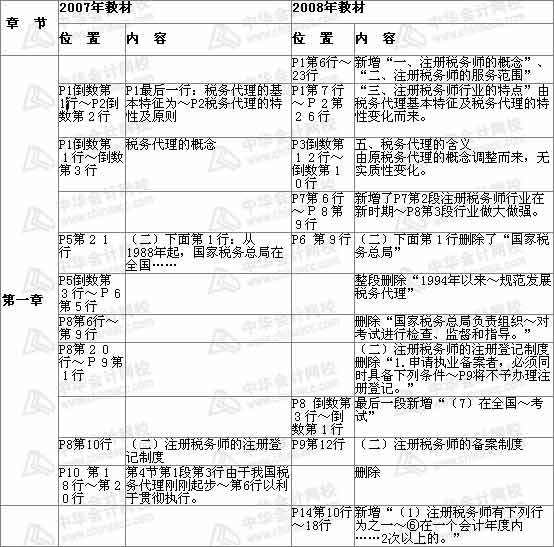 章 节
2007年教材
2008年教材
位 置
内 容
位 置
内 容
第一章
P1第6行～
23行
新增“一、注册税务师的概念”、
“二、注册税务师的服务范围”
P1倒数第
1行～P2倒
数第2行
P1最后一行：税务代理的基
本特征为～P2税务代理的特
性及原则
P1第7行
～P2第
26行
“三、注册税务师行业的特点”由
税务代理基本特征及税务代理的特
性变化而来。
P1倒数第
1行～倒数
第3行
税务代理的概念
P3倒数第
12行～
倒数第1
0行
五、税务代理的含义
由原税务代理的概念调整而来，无
实质性变化。
P7第6行
～P8第
9行
新增了P7第2段注册税务师行业在
新时期～P8第3段行业做大做强。
P5第21
行
（二）下面第1行：从
1988年起，国家税务总局在
全国……
P6 第9行
（二）下面第1行删除了“国家税
务总局”
P5倒数第
3行～P6
第5行
整段删除“1994年以来～规范发展
税务代理”
P8第6行～
第9行
删除“国家税务总局负责组织～对
考试进行检查、监督和指导。”
P8第20
行～P9第
1行
（二）注册税务师的注册登记制度
删除“1.申请执业备案者，必须同
时具备下列条件～P9将不予办理注
册登记。”
P8 倒数第
3行～倒
数第1行
最后一段新增“（7）在全国～考
试”
P8第10行
（二）注册税务师的注册登
记制度
P9第12行
（二）注册税务师的备案制度
P10 第1
8行～第2
0行
第4节第1段第3行由于我国税
务代理刚刚起步～第6行以利
于贯彻执行。
删除
P14第10行
～18行
新增“（1）注册税务师有下列行
为之一～⑥在一个会计年度内
……2次以上的。”